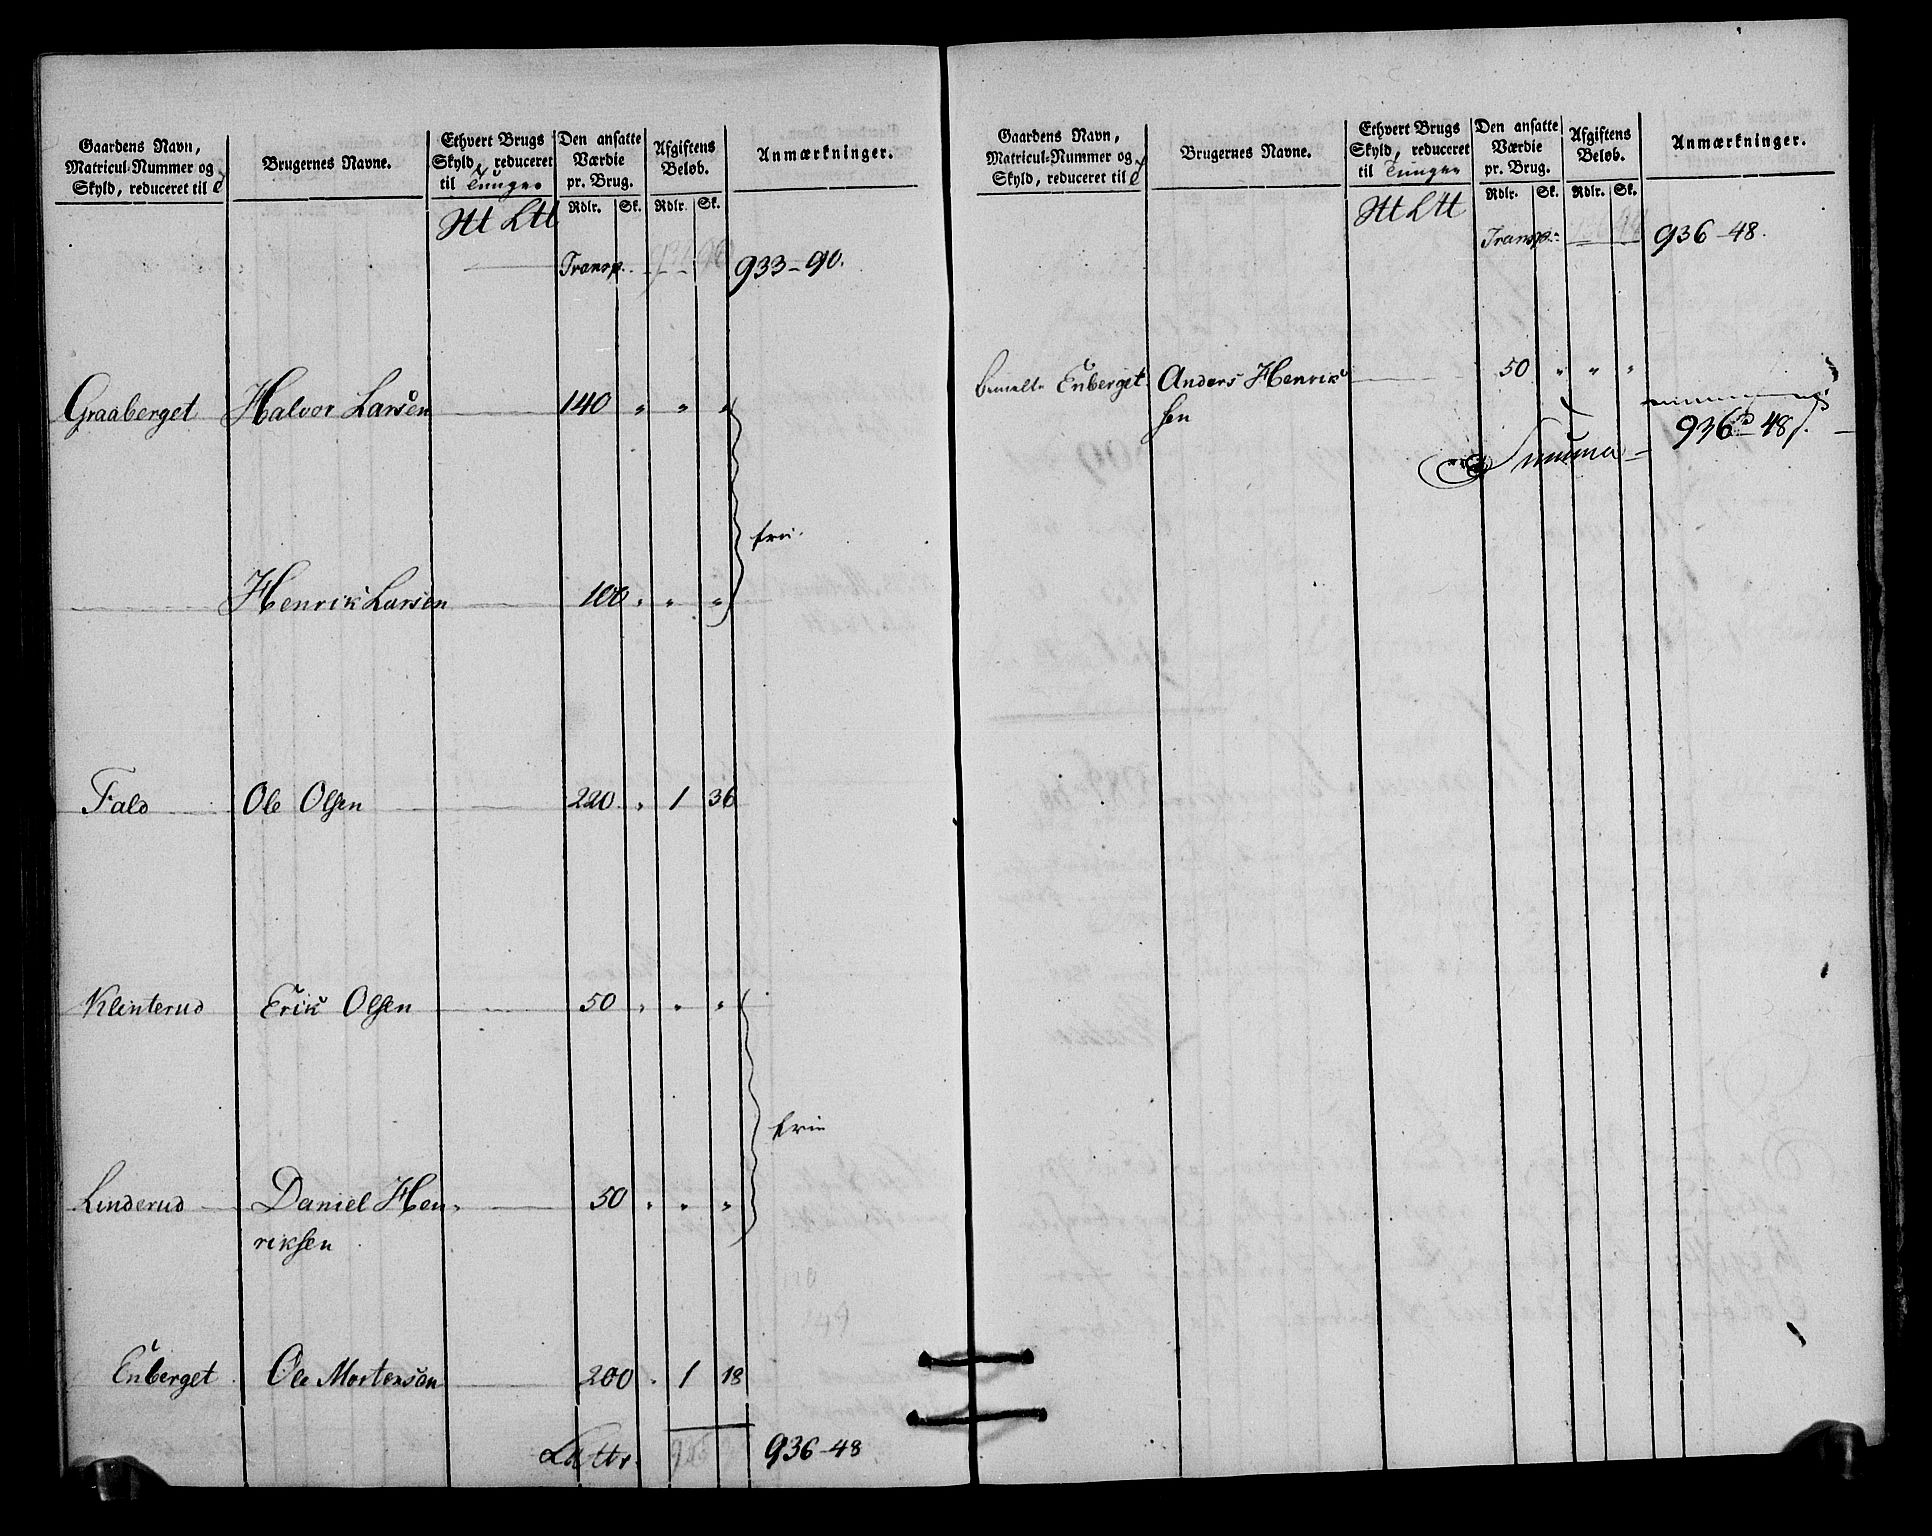 Gaardens Navn, Matricul-Nummer og Skyld, reduceret til
Brugernes Navne.
Ethvert Brugs Skyld, reduceret til Tunger
Den ansatte Værdie pr. Brug.
Afgiftens Beløb.
Anmærkninger.
Rdlr. Sk. Rdlr. Sk.
Htt Ltt
Transp. 933-90.
Graaberget Halvor Larsen 140 " " "
frii.
Henrik Larsen 100 " " "
Fald Ole Olsen 220 " 1 36
Klinterud Erik Olsen 50 " " "
frie
Linderud Daniel Hen-
riksen 50 " " "
Enberget Ole Mortensøn 200 " 1 18
Lattr. 936-48
Gaardens Navn, Matricul-Nummer og Skyld, reduceret til
Brugernes Navne.
Ethvert Brugs Skyld, reduceret til Tunger
Den ansatte Værdie pr. Brug.
Afgiftens Beløb.
Anmærkninger.
Rdlr. Sk. Rdlr. Sk.
Htt Ltt
Transp. 936-48.
Enberget Anders Henrik
sen 50 " " "
Summa 936-48